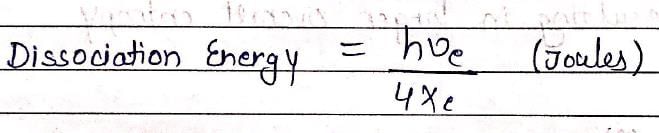 Dissociation Energy = hνe (Joules)
4Xe